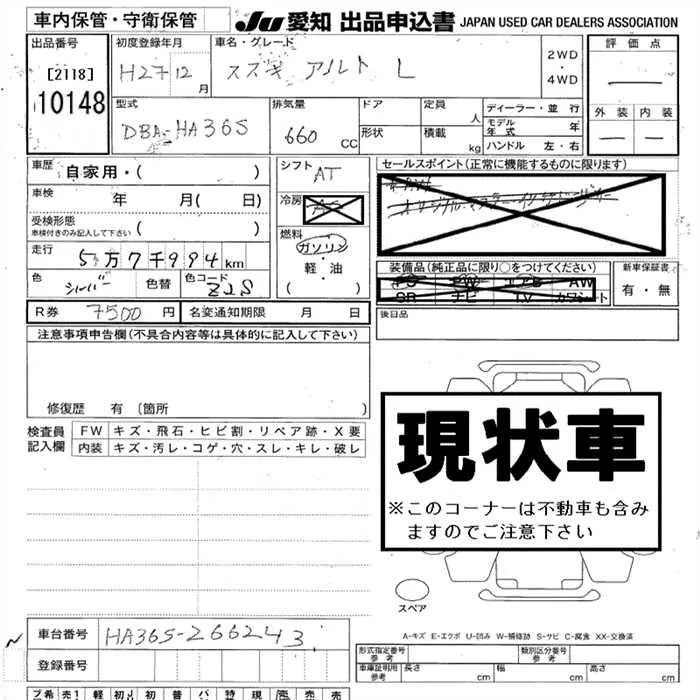 車内保管・守衛保管
JU 愛知 出品申込書 JAPAN USED CAR DEALERS ASSOCIATION
出品番号
[2118]
10148
初度登録年月
H27 12月
車名・グレード
スズキ アルト L
2WD
・
4WD
評価点
外装 内装
型式
DBA-HA36S
排気量
660 CC
ドア
形状
定員 人
積載 kg
ディーラー・並行
モデル年式 年
ハンドル 左・右
車歴 自家用・( )
車検 年 月( 日)
受検形態
車検付きのみ記入して下さい ( )
走行 5万7千994km
色 シルバー 色替 色コード Z2S
シフト AT
冷房
燃料
ガソリン
・
軽・油
( )
セールスポイント(正常に機能するものに限ります)
装備品(純正品に限り○をつけてください)
PS PW エアB AW
SR ナビ TV カワシート
新車保証書
有・無
R券 7500円 名変通知期限 月 日
後日品
注意事項申告欄(不具合内容等は具体的に記入して下さい)
修復歴 有(箇所 )
検査員記入欄
FW キズ・飛石・ヒビ割・リペア跡・X要
内装 キズ・汚レ・コゲ・穴・スレ・キレ・破レ
現状車
※このコーナーは不動車も含み
ますのでご注意下さい
スペア
A-キズ E-エクボ U-凹み W-補修跡 S-サビ C-腐食 XX-交換済
車台番号 HA36S-266243
登録番号
形式指定番号 参考
類別区分番号 参考
車庫証明用 参考 長さ cm 幅 cm 高さ cm